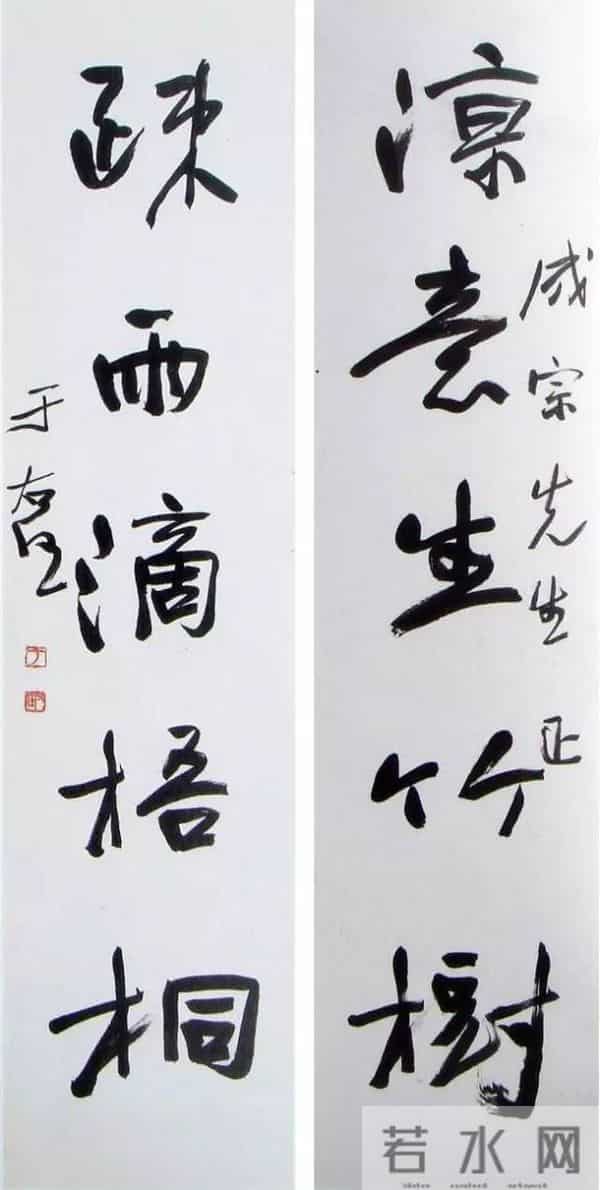 成宗先生正
涼意生竹樹
疎雨滴梧桐
于右任
若水网